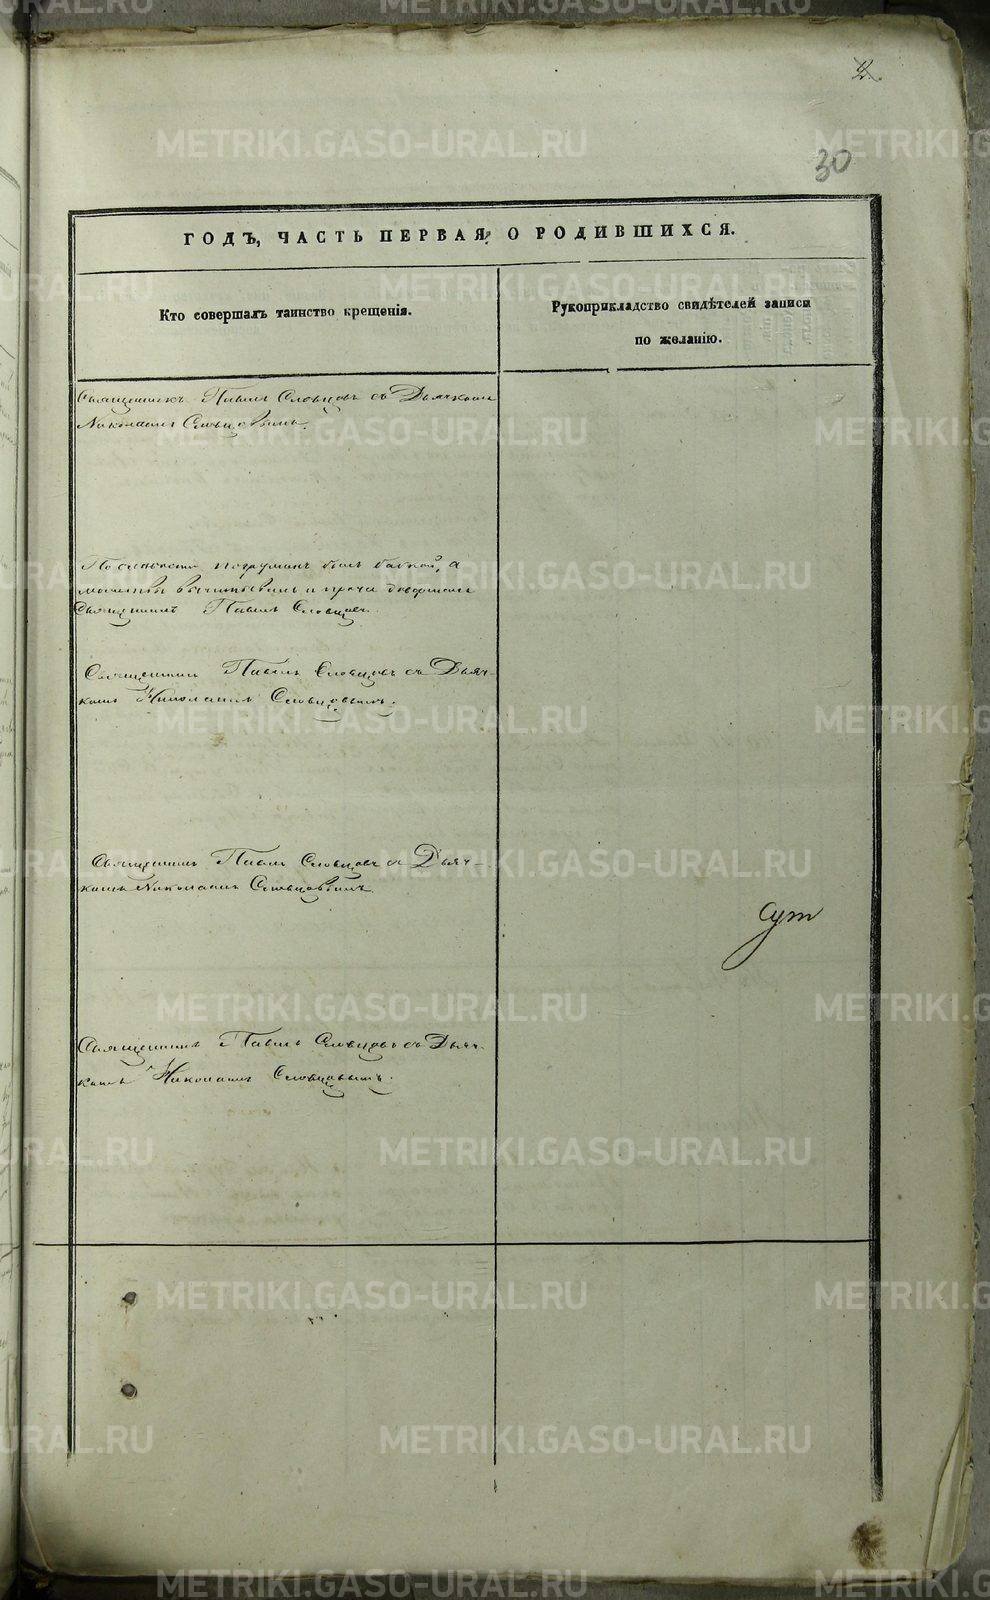 30
ГОДЪ, ЧАСТЬ ПЕРВАЯ, О РОДИВШИХСЯ.
Кто совершалъ таинство крещенія.
Рукоприкладство свидѣтелей записи
по желанію.
Священникъ Павелъ Словцовъ съ Дьячкомъ
Николаемъ Словцовымъ.
погружанъ былъ бабкой, а
молитвы и проч.
Священникъ Павелъ Словцовъ.
Священникъ Павелъ Словцовъ съ Дьяч-
комъ Николаемъ Словцовымъ.
Священникъ Павелъ Словцовъ съ Дьяч-
комъ Николаемъ Словцовымъ.
Священникъ Павелъ Словцовъ съ Дьяч-
комъ Николаемъ Словцовымъ.
METRIKI.GASO-URAL.RU